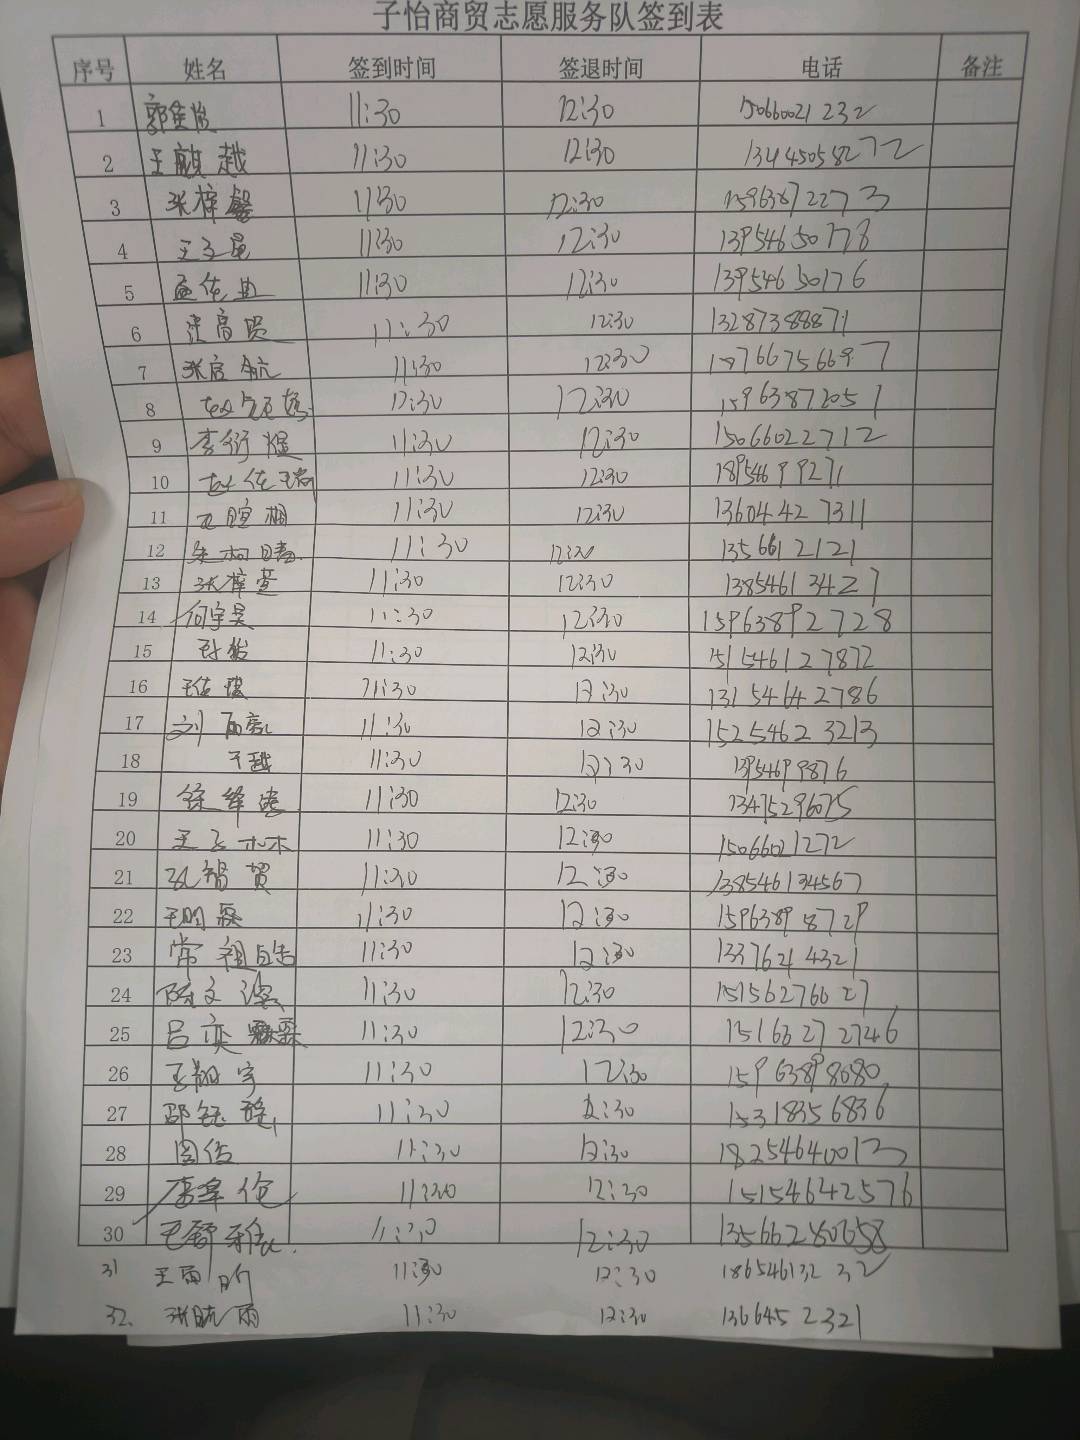 子怡商贸志愿服务队签到表
序号 姓名 签到时间 签退时间 电话 备注
1 11:30 12:30 15066021232
2 王麒越 11:30 12:30 13445058272
3 张梓馨 11:30 12:30 15963872273
4 王子星 11:30 12:30 13954650178
5 孟佐典 11:30 12:30 13954650176
6 11:30 12:30 13287388871
7 张宸航 11:30 12:30 18766756697
8 12:30 12:30 15963872051
9 李衍煜 11:30 12:30 15066022712
10 赵佐瑞 11:30 12:30 18954699271
11 11:30 12:30 13604427311
12 11:30 1356612121
13 张梓萱 11:30 12:30 13854613427
14 何宇昊 11:30 12:30 15963892728
15 11:30 12:30 151546127872
16 11:30 12:30 13154642786
17 刘 11:30 12:30 15254623213
18 于越 11:30 12:30 13954699876
19 徐绎 11:30 12:30 13475296075
20 王子木木 11:30 12:30 15066021272
21 贺 11:30 12:30 138546134567
22 11:30 12:30 15963898729
23 常祖皓 11:30 12:30 13376214321
24 陈文 11:30 12:30 15156276627
25 吕奕霖 11:30 12:30 15166272746
26 王翔宇 11:30 12:30 15963898680
27 邵钰 11:30 12:30 15318356836
28 周佐 11:30 12:30 18254640013
29 11:30 12:30 15154642576
30 毛舒雅 11:30 12:30 13566280658
31 王雨昕 11:30 12:30 18654613232
32. 张航雨 11:30 12:30 1366452321